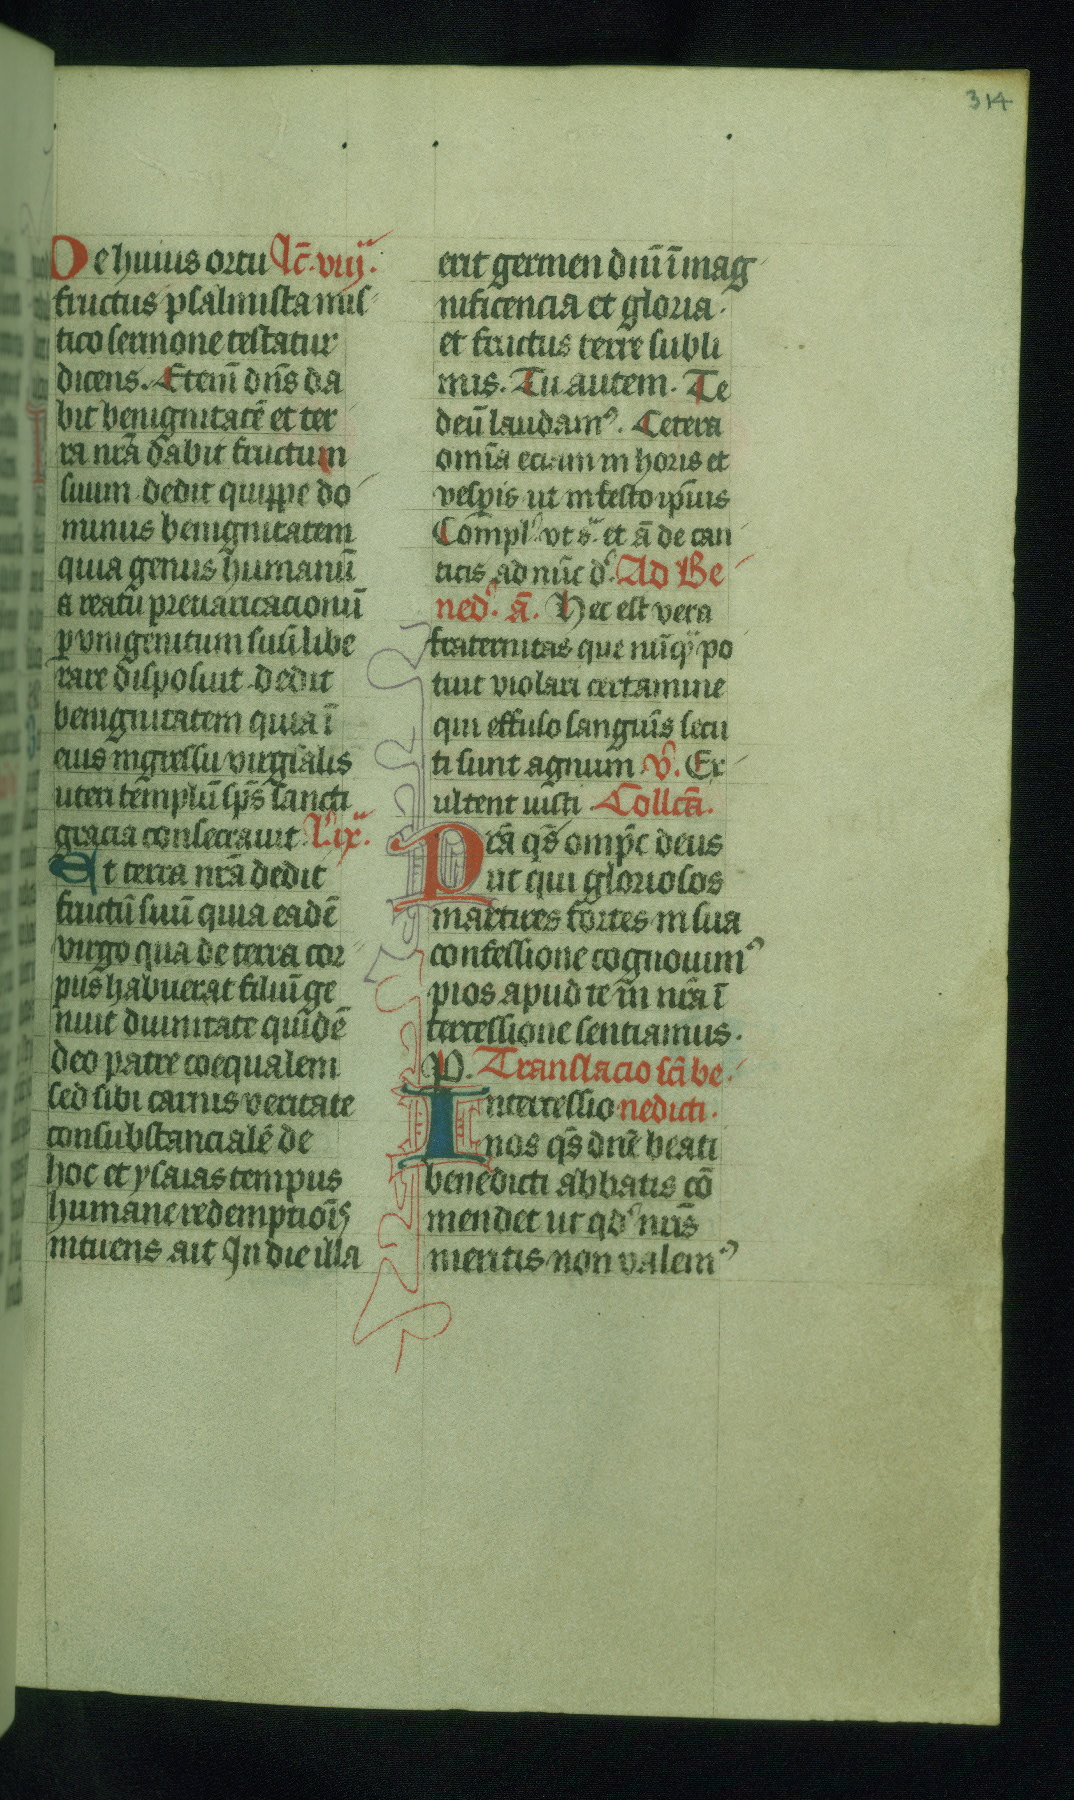 314
De huius ortu Lc̄. viij.
fructus psalmista mis
tico sermone testatur
dicens. Eteni̅ dn̄s da
bit benignitatē et ter
ra nr̄a dabit fructum
suum dedit quippe do
minus benignitatem
quia genus humanū
a reatu preuaricacionū
ꝑ vnigenitum suū libe
rare disposuit dedit
benignitatem quia ī
eius ingressu virginalis
uteri templū sp̄s sancti
gracia consecrauit L. ix.
Et terra nr̄a dedit
fructū suū quia eadē
virgo qua de terra cor
pus habuerat filiū ge
nuit diuinitate quidē
deo patre coequalem
sed sibi carnis veritate
consubstancialē de
hoc et ysaias tempus
humane redemptiōis
intuens ait In die illa
erit germen dn̄i ī mag
nificencia et gloria.
et fructus terre subli
mis. Tu autem. Te
deū laudamꝰ. Cetera
omīa eciam in horis et
vesꝑis ut in festo ip̄ius
Compl' vt sᵃ et ā de can
ticis ad nūc d'. Ad Be
ned'. ā. Hec est vera
fraternitas que nūqᵃ po
tuit violari certamine
qui effuso sanguīs secu
ti sunt agnum ℣. Ex
ultent iusti Collcā.
Pr̄a qs̄ omp̄c deus
ut qui gloriosos
martires fortes in sua
confessione cognouimꝰ
pios apud te in nr̄a ī
tercessione senciamus.
P. Translacio sc̄i be
Intercessio nedicti.
nos qs̄ dn̄e beati
benedicti abbatis cō
mendet ut qd' nr̄is
meritis non valemꝰ